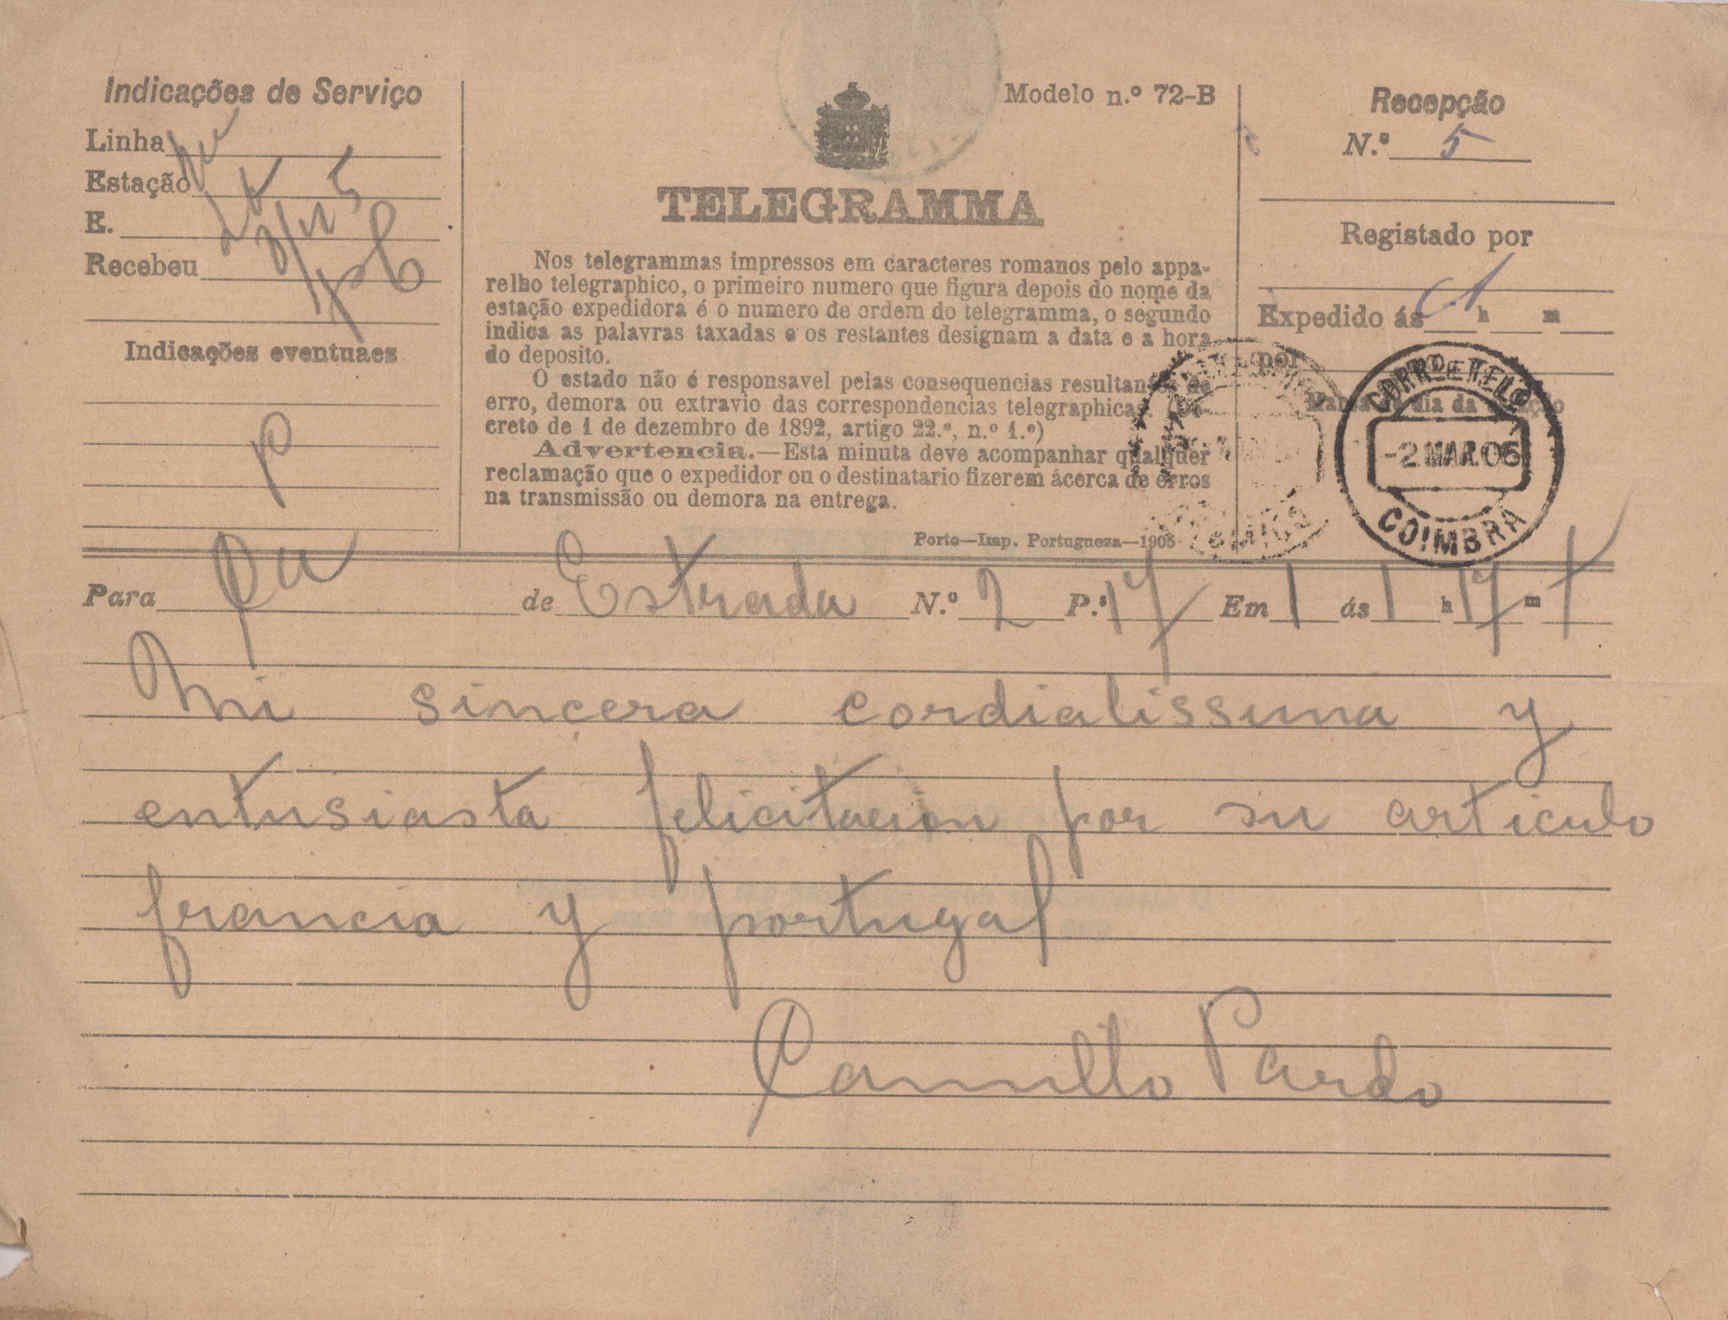 Indicações de Serviço
Linha
Estação
E.
Recebeu
Indicações eventuaes
P
Modelo n.º 72-B
TELEGRAMMA
Nos telegrammas impressos em caracteres romanos pelo appa-
relho telegraphico, o primeiro numero que figura depois do nome da
estação expedidora é o numero de ordem do telegramma, o segundo
indica as palavras taxadas e os restantes designam a data e a hora
do deposito.
O estado não é responsavel pelas consequencias resultantes de
erro, demora ou extravio das correspondencias telegraphicas. (De-
creto de 1 de dezembro de 1892, artigo 22.º, n.º 1.º)
Advertencia.—Esta minuta deve acompanhar qualquer
reclamação que o expedidor ou o destinatario fizerem ácerca de erros
na transmissão ou demora na entrega.
Porto—Imp. Portugueza—1905
Recepção
N.º 5
Registado por
Expedido ás h m
por
Marca do dia da estação
-2 MAR.06
COIMBRA
Para de Estrada N.º 2 P.s 17 Em 1 ás 1 h 17 m t
Mi sincera cordialissima y
entusiasta felicitacion por su articulo
francia y portugal
Camillo Pardo